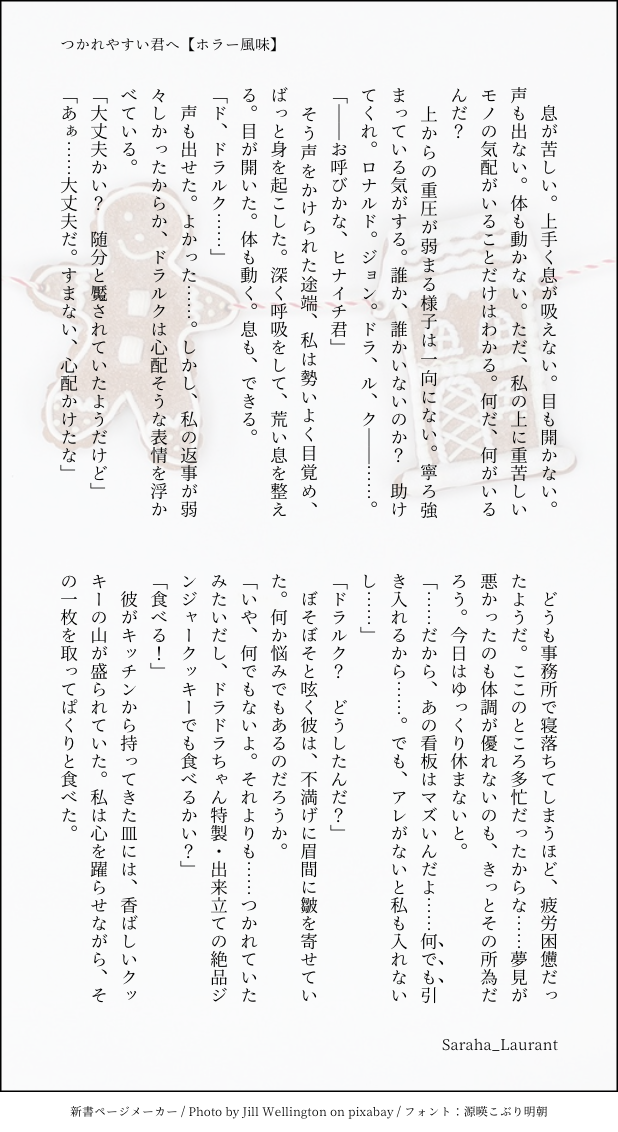 つかれやすい君へ【ホラー風味】
　息が苦しい。上手く息が吸えない。目も開かない。
声も出ない。体も動かない。ただ、私の上に重苦しい
モノの気配がいることだけはわかる。何だ、何がいる
んだ？
　上からの重圧が弱まる様子は一向にない。寧ろ強
まっている気がする。誰か、誰かいないのか？　助け
てくれ。ロナルド。ジョン。ドラ、ル、ク――……。
「――お呼びかな、ヒナイチ君」
　そう声をかけられた途端、私は勢いよく目覚め、
ばっと身を起こした。深く呼吸をして、荒い息を整え
る。目が開いた。体も動く。息も、できる。
「ド、ドラルク……」
　声も出せた。よかった……。しかし、私の返事が弱
々しかったからか、ドラルクは心配そうな表情を浮か
べている。
「大丈夫かい？　随分と魘されていたようだけど」
「あぁ……大丈夫だ。すまない、心配かけたな」
　どうも事務所で寝落ちてしまうほど、疲労困憊だっ
たようだ。ここのところ多忙だったからな……夢見が
悪かったのも体調が優れないのも、きっとその所為だ
ろう。今日はゆっくり休まないと。
「……だから、あの看板はマズいんだよ……何でも引
き入れるから……。でも、アレがないと私も入れない
し……」
「ドラルク？　どうしたんだ？」
　ぼそぼそと呟く彼は、不満げに眉間に皺を寄せてい
た。何か悩みでもあるのだろうか。
「いや、何でもないよ。それよりも……つかれていた
みたいだし、ドラドラちゃん特製・出来立ての絶品ジ
ンジャークッキーでも食べるかい？」
「食べる！」
　彼がキッチンから持ってきた皿には、香ばしいクッ
キーの山が盛られていた。私は心を躍らせながら、そ
の一枚を取ってぱくりと食べた。
Saraha_Laurant
新書ページメーカー / Photo by Jill Wellington on pixabay / フォント：源暎こぶり明朝